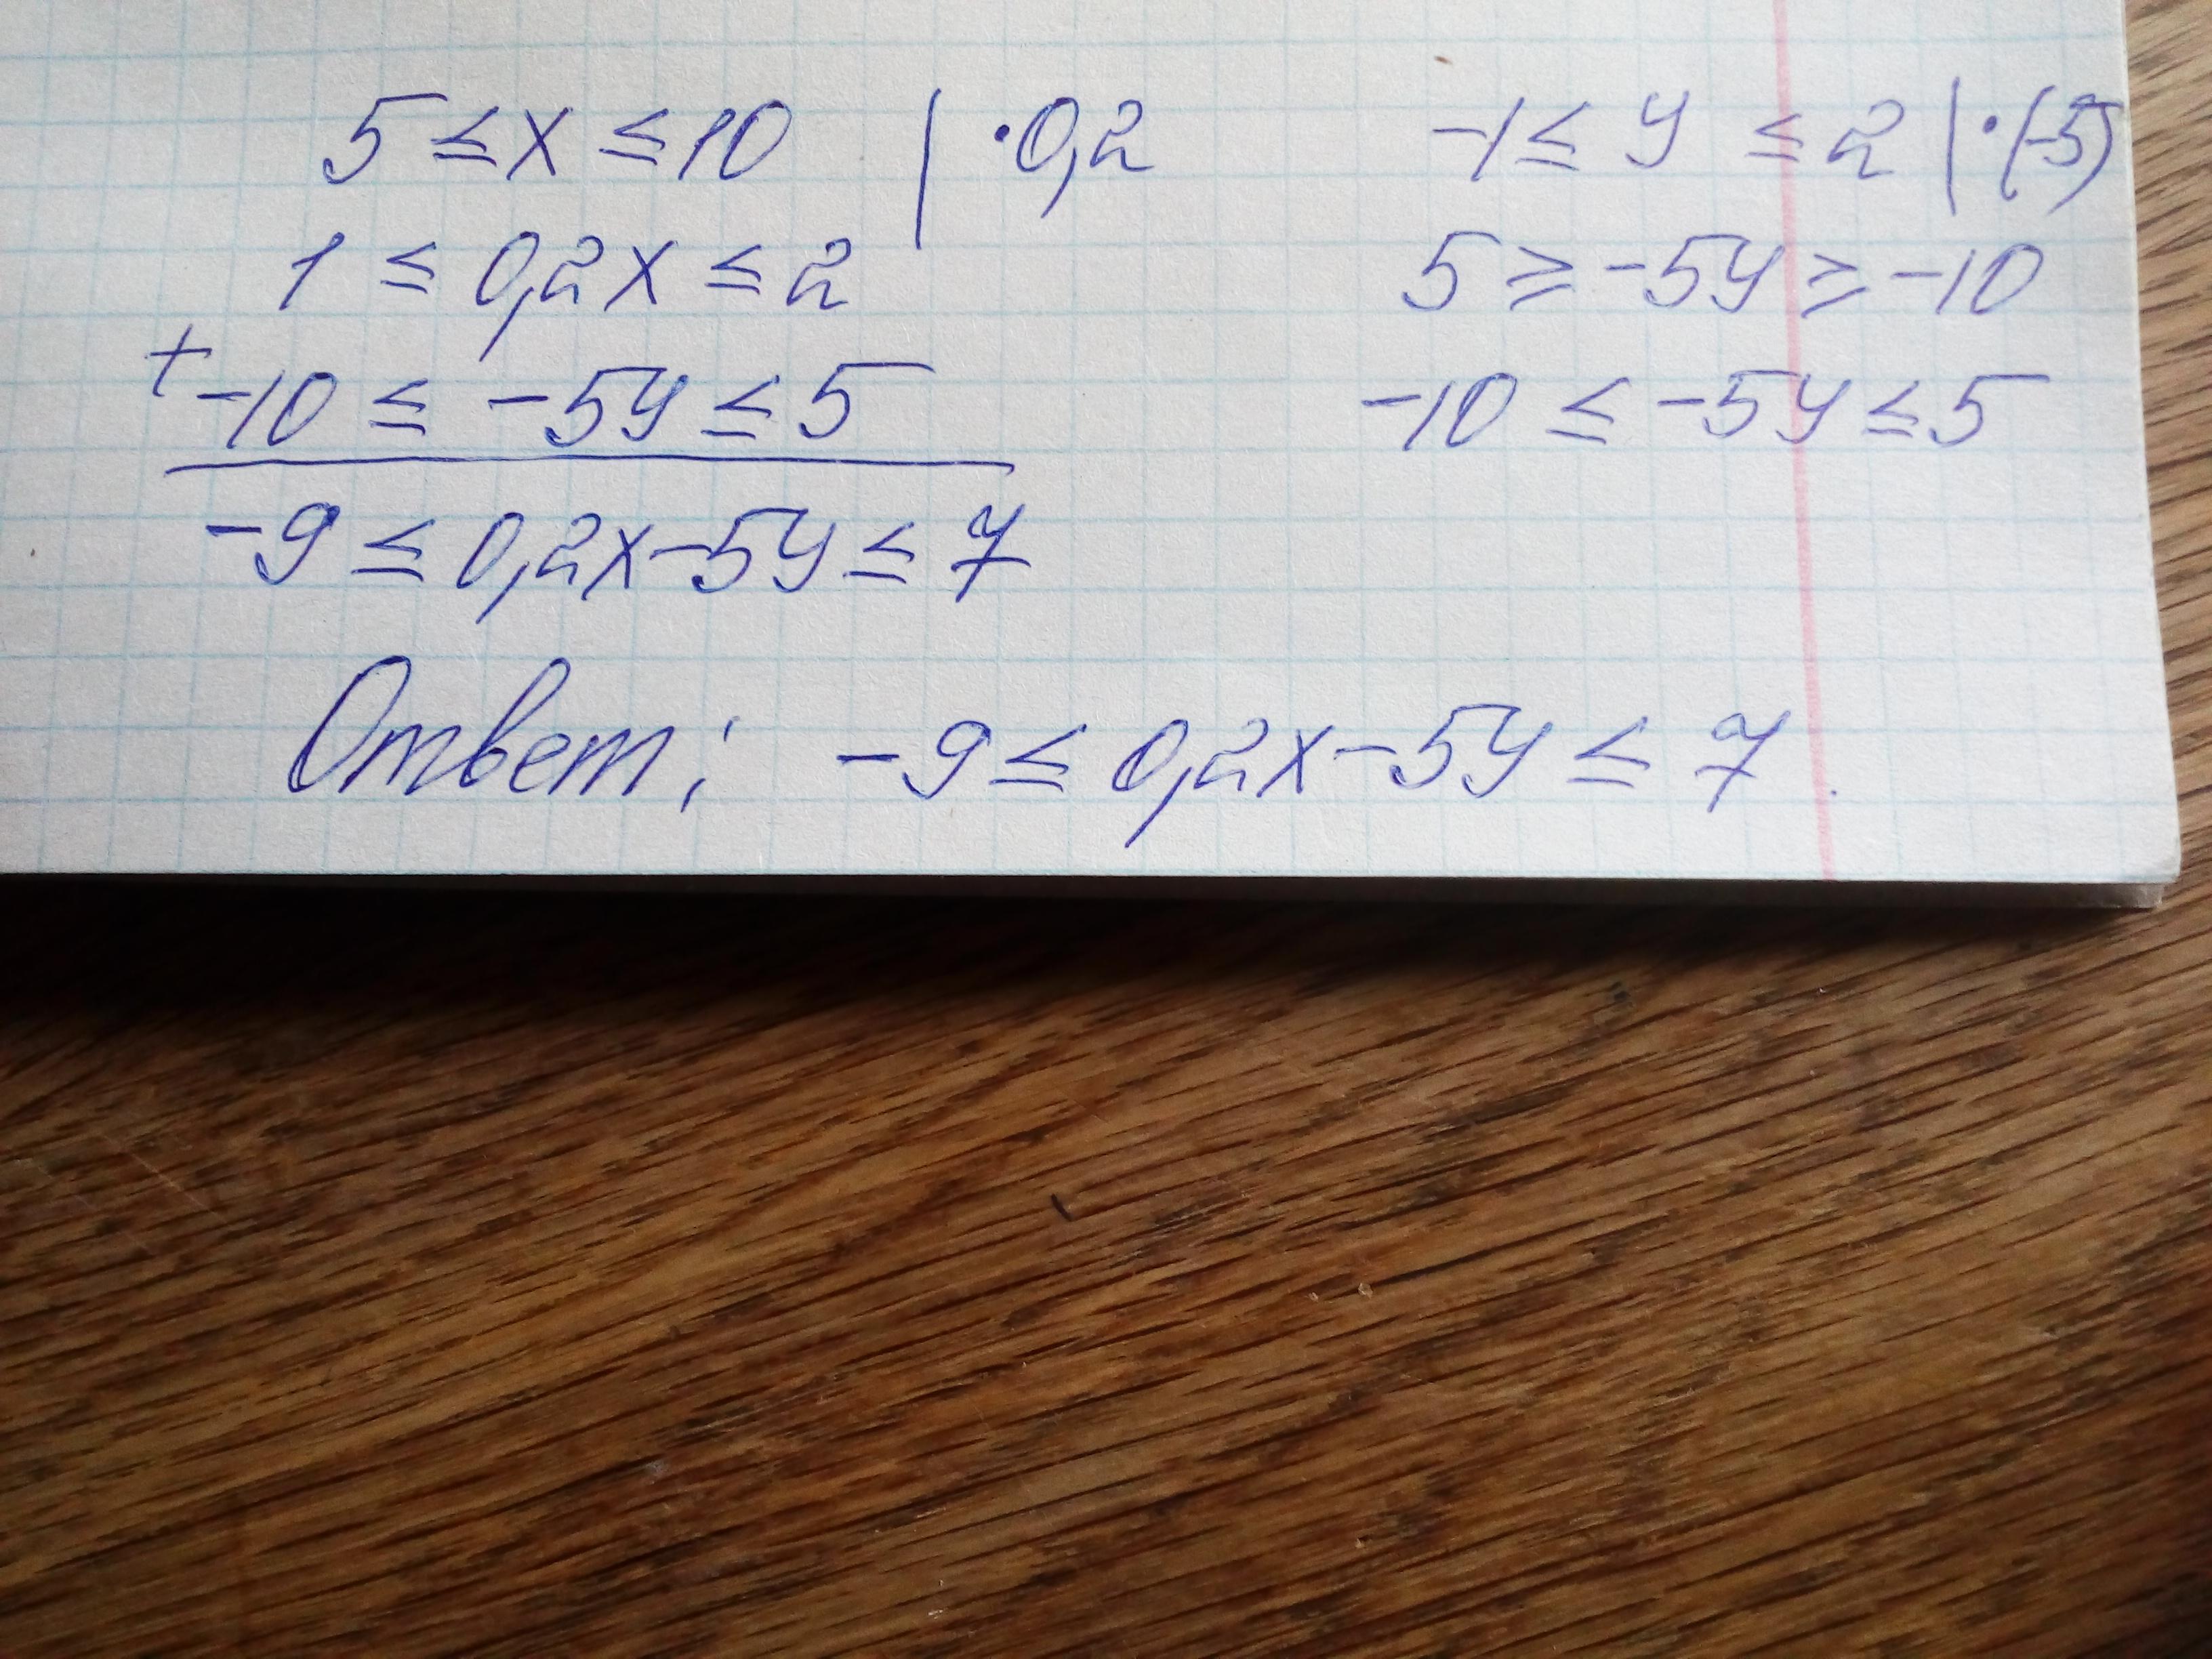 5 ≤ x ≤ 10 | · 0,2
1 ≤ 0,2x ≤ 2
+ -10 ≤ -5y ≤ 5
-9 ≤ 0,2x-5y ≤ 7
-1 ≤ y ≤ 2 | · (-5)
5 ≥ -5y ≥ -10
-10 ≤ -5y ≤ 5
Ответ: -9 ≤ 0,2x-5y ≤ 7.